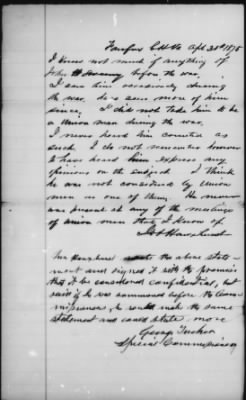 Fairfax C.H. Va Apl 30th 1875
I know not much if anything of
John H Sweeney before the war.
I saw him occasionally during
the war, have seen more of him
since. I did not take him to be
a Union man during the war.
I never heard him counted as
such. I do not remember however
to have heard him express any
opinions on the subject. I think
he was not considered by Union
men as one of them. He never
was present at any of the meetings
of union men that I know of.

Mr. wrote the above state-
ment and signed it with the promise
that it be considered confidential, but
said if he was summoned before the Com-
missioners, he would make the same
statement and could state more
George Tucker
Special Commissioner